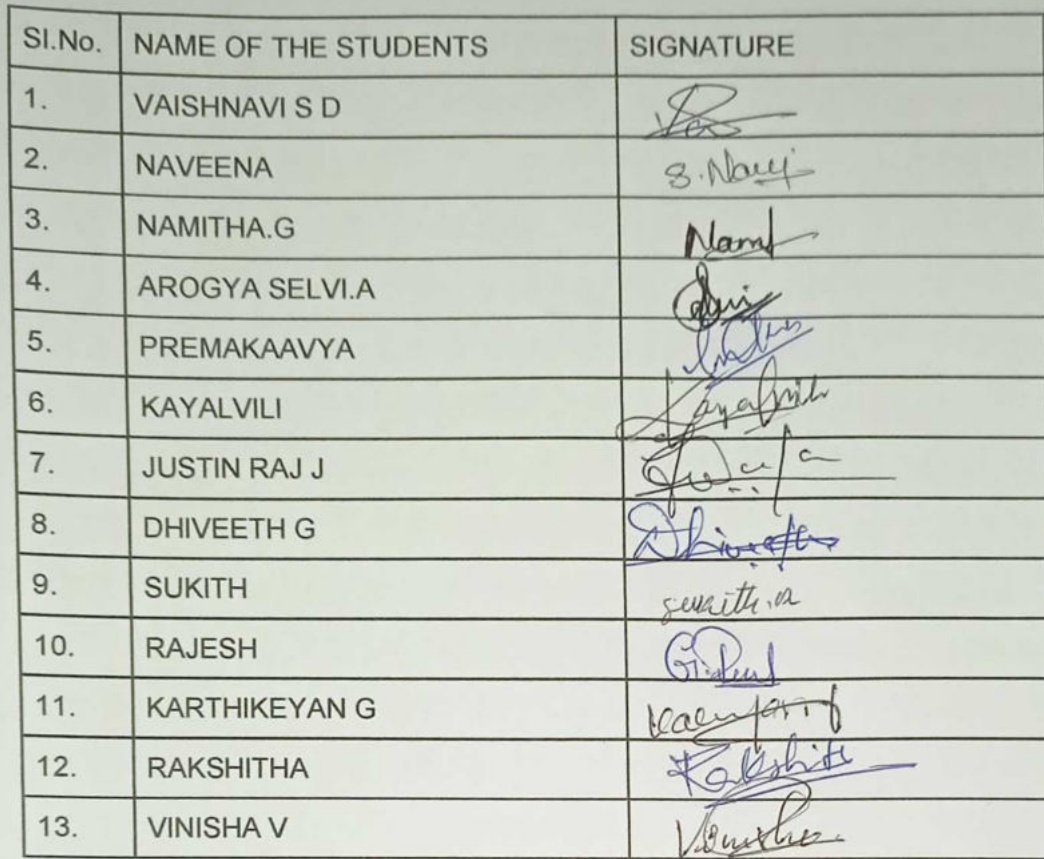 SI.No. NAME OF THE STUDENTS SIGNATURE
1. VAISHNAVI S D
2. NAVEENA S.Navi
3. NAMITHA.G
4. AROGYA SELVI.A
5. PREMAKAAVYA
6. KAYALVILI
7. JUSTIN RAJ J
8. DHIVEETH G Dhiveeth
9. SUKITH
10. RAJESH
11. KARTHIKEYAN G
12. RAKSHITHA
13. VINISHA V